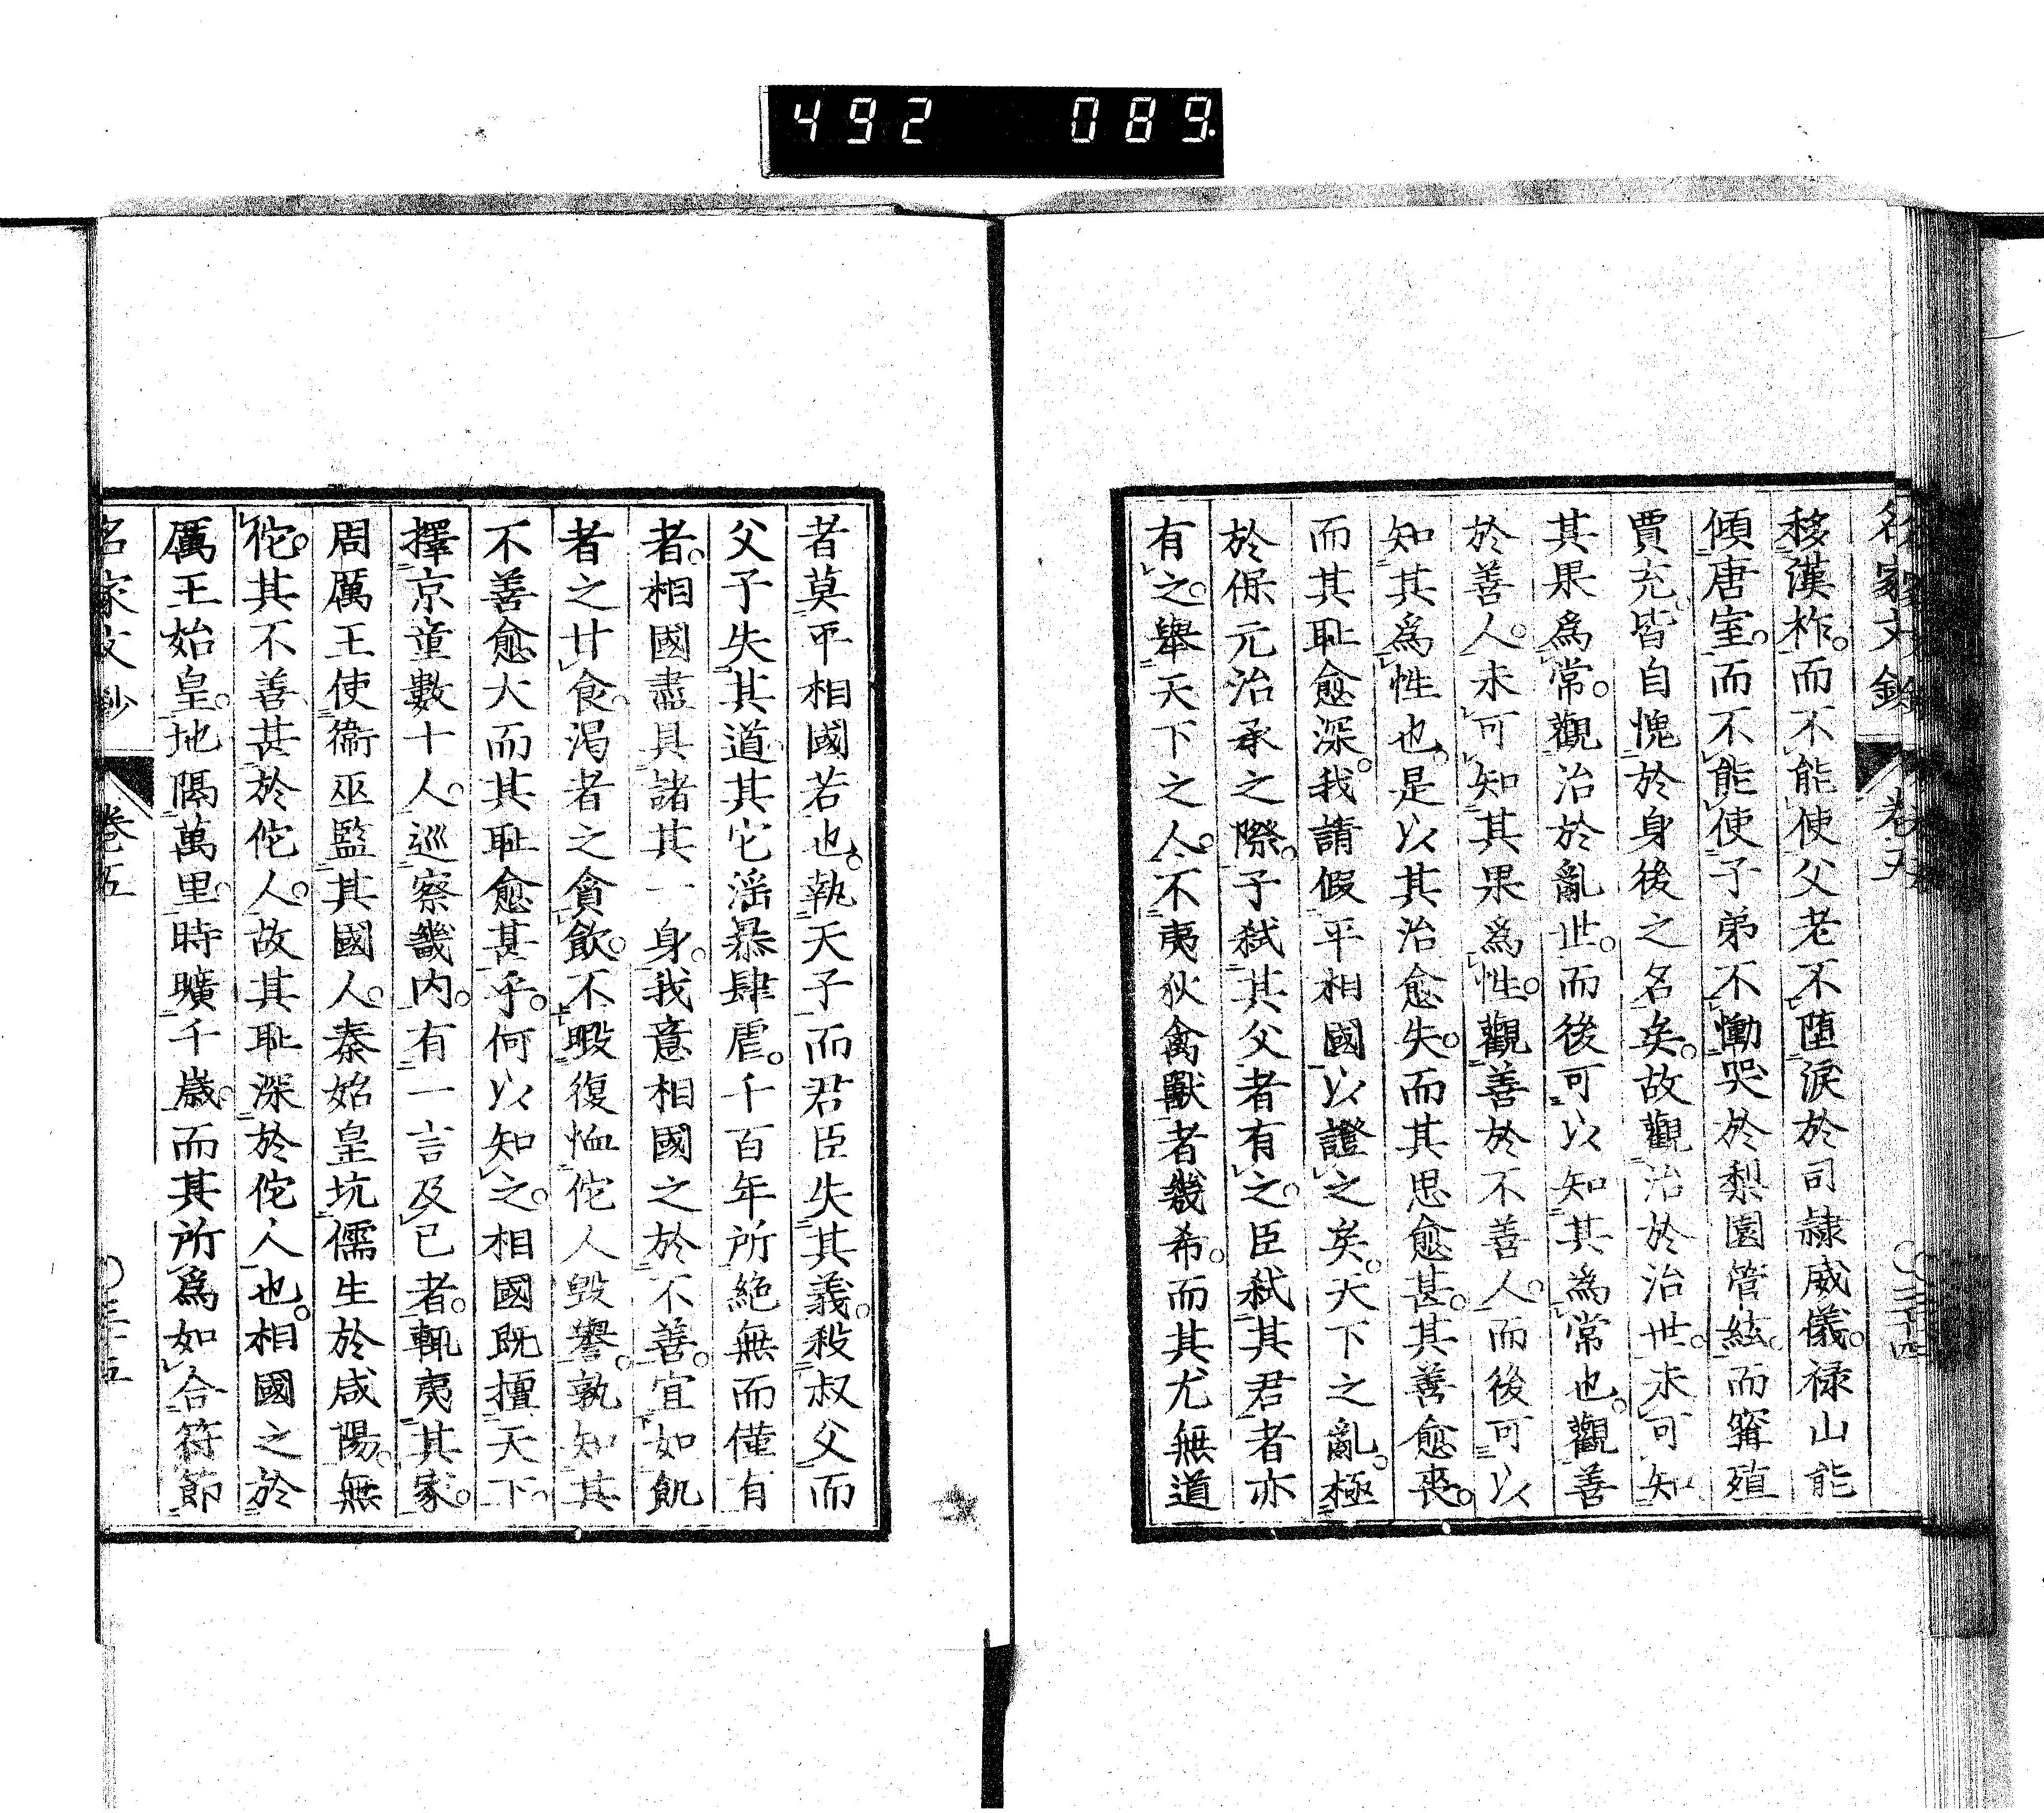 492 089.
名家文鈔 卷五 〇三十四
移漢祚。而不能使父老不堕淚於司隷威儀。禄山能
傾唐室。而不能使子弟不慟哭於梨園管絃。而窜殖
賈充。皆自愧於身後之名矣。故觀治於治世。未可知
其果爲常。觀治於亂世。而後可以知其爲常也。觀善
於善人。未可知其果爲性。觀善於不善人。而後可以
知其爲性也。是以其治愈失。而其思愈甚。其善愈喪。
而其耻愈深。我請假平相國以證之矣。天下之亂。極
於保元治承之際。子弑其父者有之。臣弑其君者亦
有之。舉天下之人。不夷狄禽獸者幾希。而其尤無道
者莫平相國若也。執天子而君臣失其義。殺叔父而
父子失其道。其它滛暴肆虐。千百年所絶無而僅有
者。相國盡具諸其一身。我意相國之於不善。宜如飢
者之甘食。渇者之貪飲。不暇復恤佗人毀譽。孰知其
不善愈大而其耻愈甚乎。何以知之。相國既擅天下。
擇京童數十人。巡察畿内。有一言及已者。輒夷其家。
周厲王使衞巫監其國人。秦始皇坑儒生於咸陽。無
佗。其不善甚於佗人。故其耻深於佗人也。相國之於
厲王始皇。地隔萬里。時曠千歳。而其所爲如合符節
名家文鈔 卷五 〇三十五